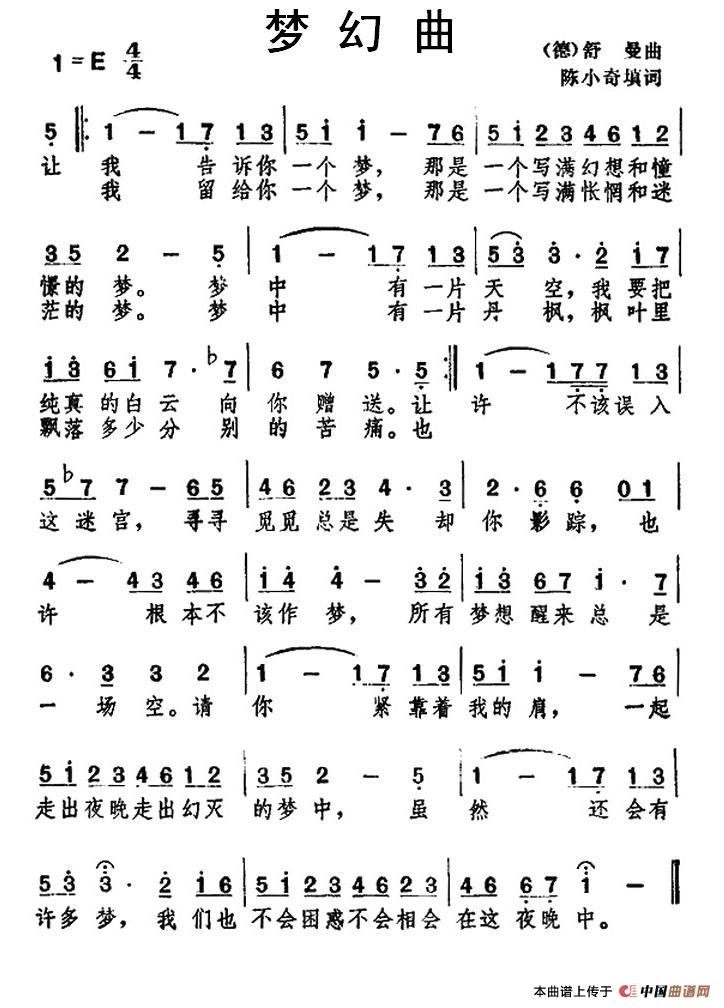 梦幻曲
1=E 4/4
（德）舒 曼曲
陈小奇填词
5 ‖: 1 － 1 7 1 3 | 5 i i － 7 6 | 5 i 2 3 4 6 1 2 |
让 我 告诉你一个梦，那是一个写满幻想和憧
我 留给你一个梦，那是一个写满怅惘和迷
3 5 2 － 5 | 1 － 1 7 1 3 | 5 3 3 · 2 i 7 |
憬的梦。梦 中 有一片天 空，我要把
茫的梦。梦 中 有一片丹 枫，枫叶里
i 3 6 i 7 · ♭7 | 6 7 5 · 5 :‖ 1 － 1 7 7 1 3 |
纯真的白云向你赠送。让 许 不该误入
飘落多少分别的苦痛。也
5 ♭7 7 － 6 5 | 4 6 2 3 4 · 3 | 2 · 6 6 0 1 |
这迷宫，寻寻觅觅总是失却你影踪，也
4 － 4 3 4 6 | i 4 4 － 3 2 | i 3 6 7 i · 7 |
许 根本不该作梦，所有梦想醒来总是
6 · 3 3 2 | 1 － 1 7 1 3 | 5 i i － 7 6 |
一场空。请你 紧靠着我的肩，一起
5 i 2 3 4 6 1 2 | 3 5 2 － 5 | 1 － 1 7 1 3 |
走出夜晚走出幻灭的梦中，虽然 还会有
5 3 3 · 2 i 6 | 5 i 2 3 4 6 4 3 | 4 6 6 7 1 － ‖
许多梦，我们也不会困惑不会相会在这夜晚中。
本曲谱上传于 中国曲谱网